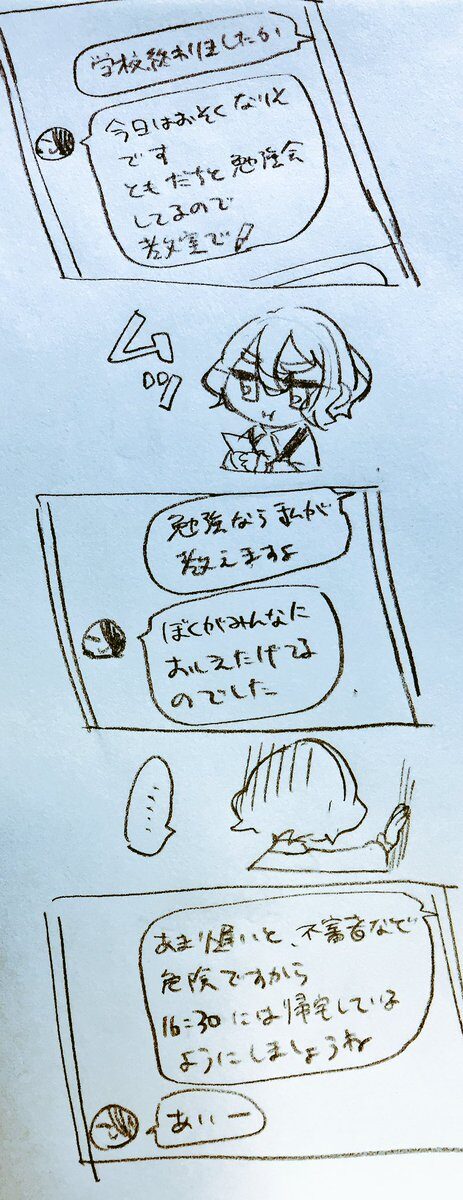 学校終わりましたか
今日はおそくなりそ
です
ともだちと勉強会
してるので
教室で
ムッ
勉強なら私が
教えますよ
ぼくがみんなに
おしえたげてる
のでした
……
あまり遅いと、不審者など
危険ですから
16:30には帰宅している
ようにしましょうね
あいー